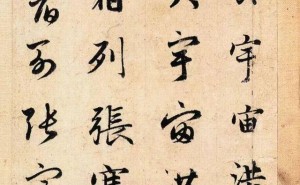 宇宙洪
宇宙洪
宿列張寒
宿列張寒